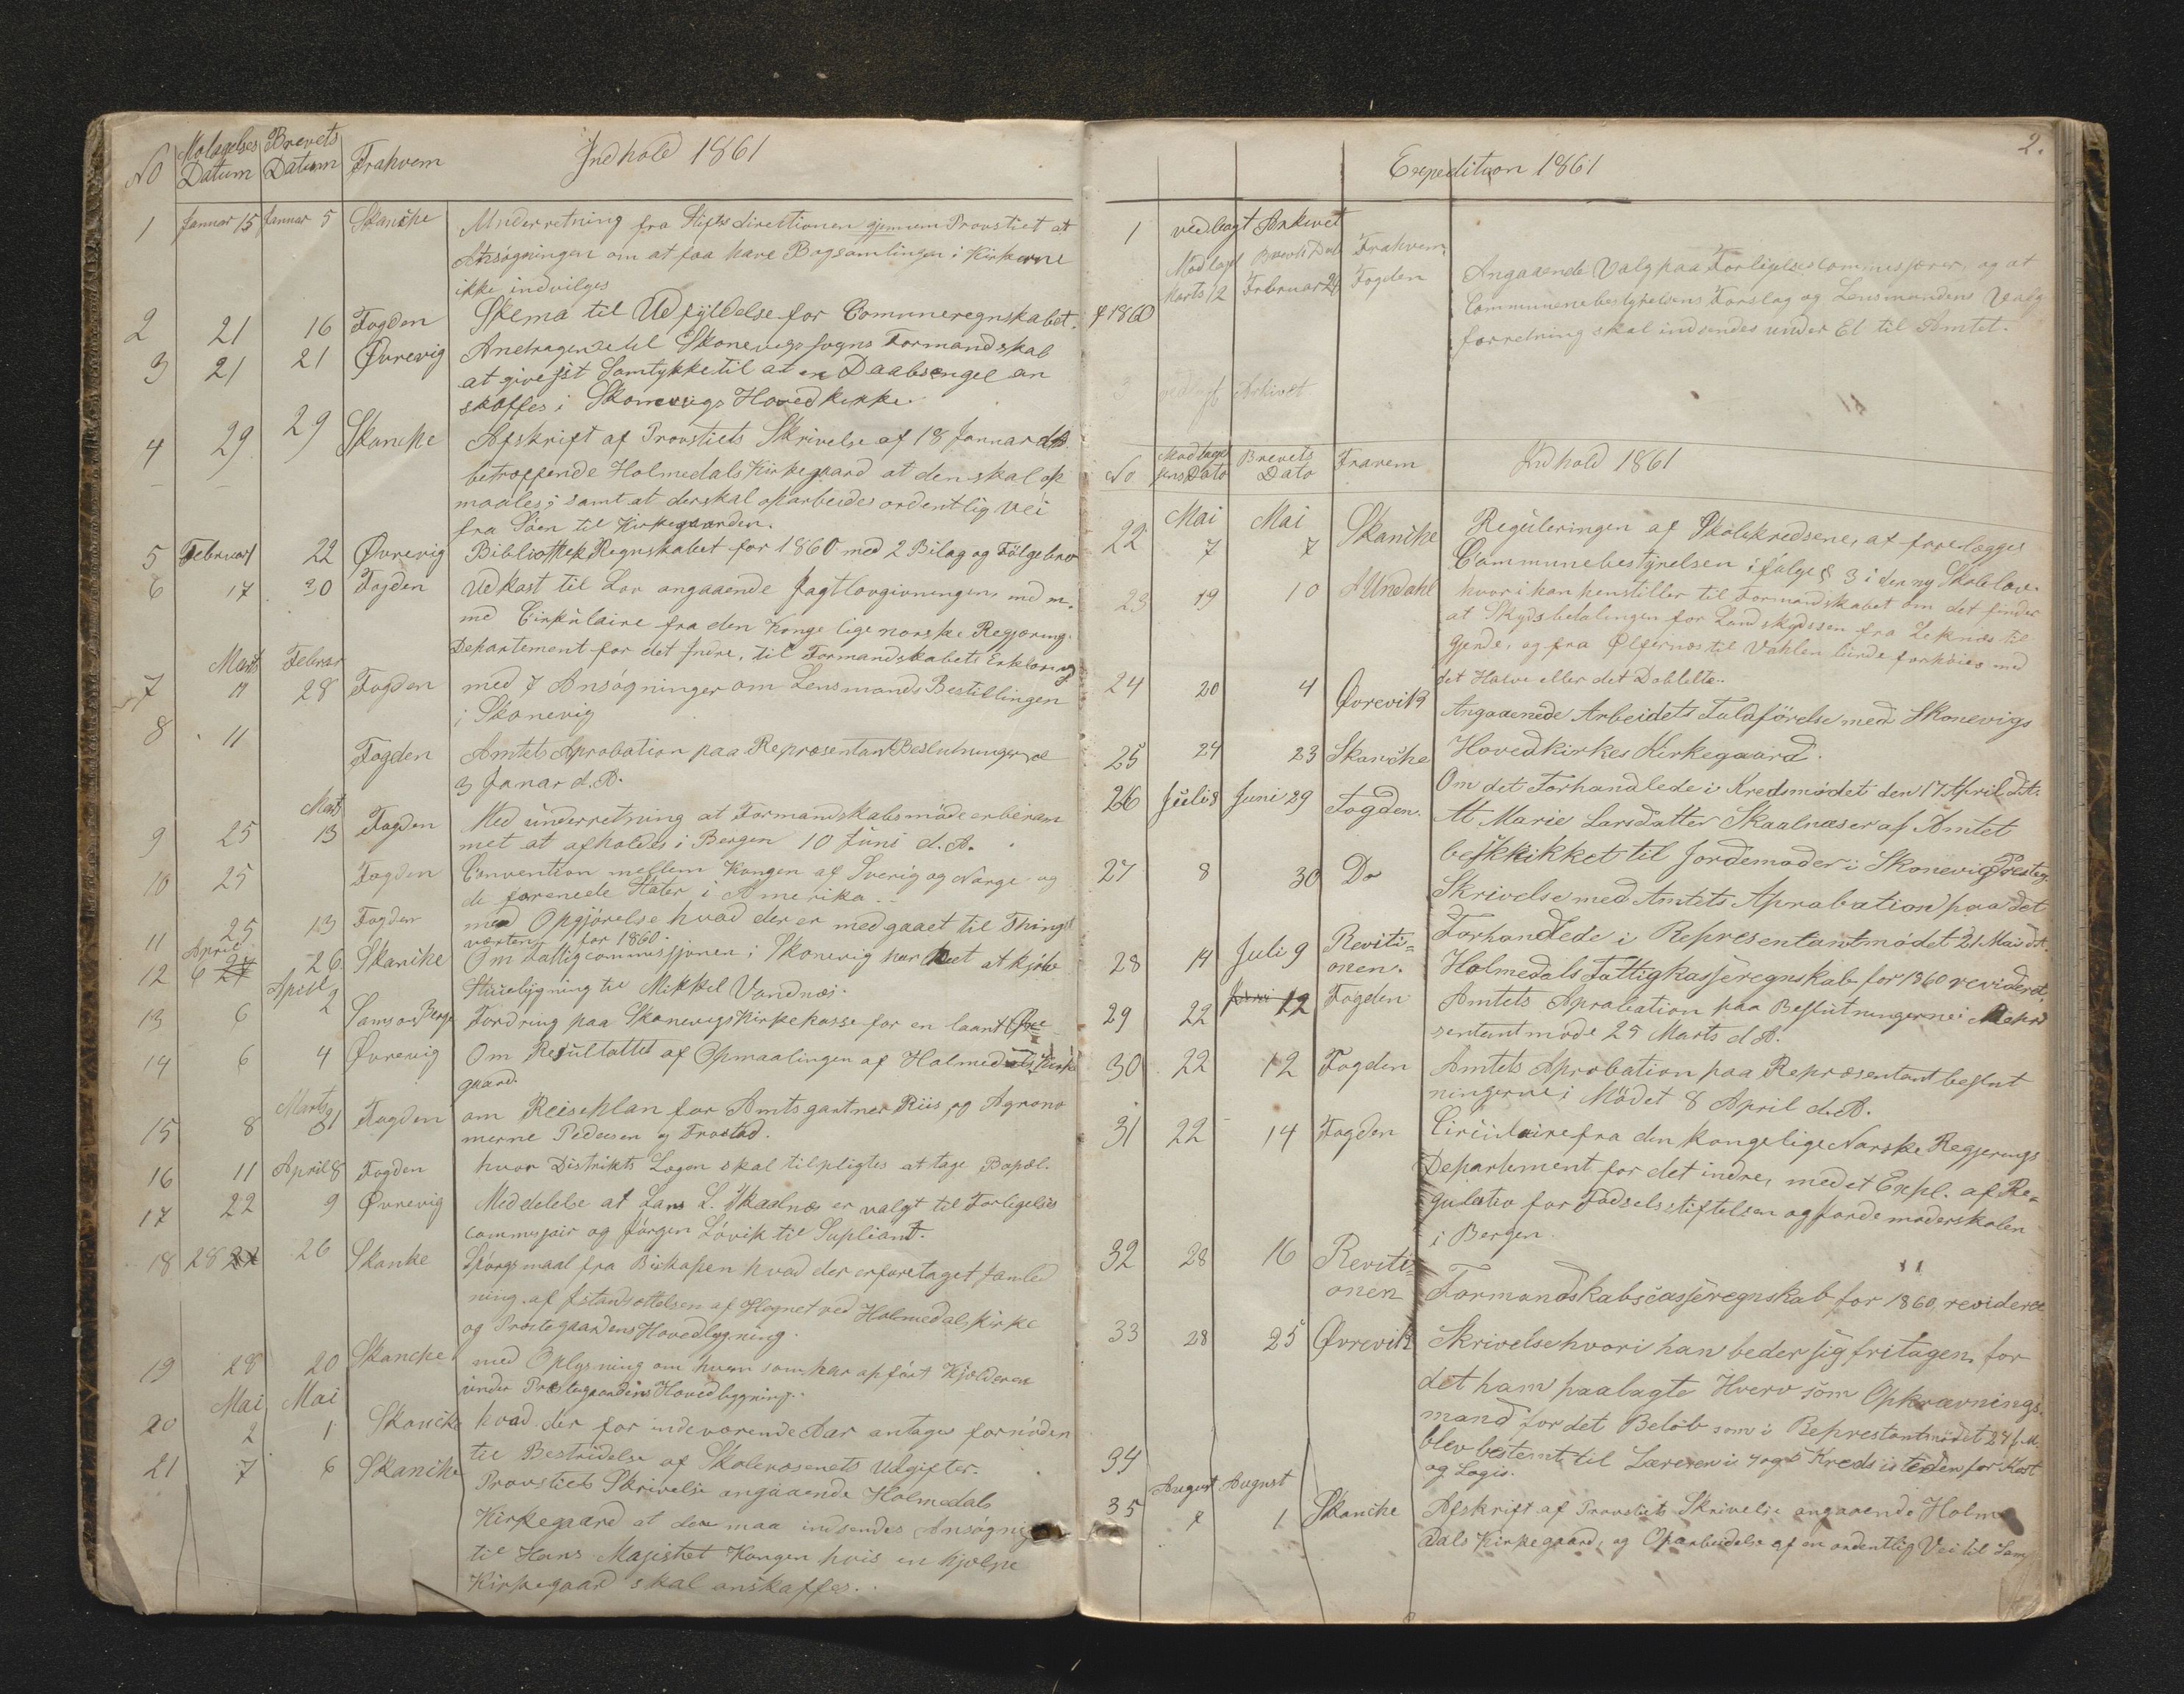 No Motagelses Datum Brevets Datum Frahvem Indhold 1861
1 Januar 15 Januar 5 Skancke Underretning fra Stiftsdirektionen gjennem Provstiet at
Ansøgningen om at faa have Bogsamlingen i Kirkerne
ikke indvilges
2 21 16 Fogden Skema til Udfyldelse for Comuneregnskabet.
3 21 21 Øvrevig Andragende til Skonevigs sogns Formandskab
at give sit Samtykke til at en Daabsengel an
skaffes i Skonevigs Hovedkirke.
4 29 29 Skancke Afskrift af Provstiets Skrivelse af 18 Januar d.A.
betræffende Holmedals Kirkegaard at den skal op
maales; samt at der skal oparbeides ordentlig Vei
fra Søen til Kirkegaarden.
5 Februar 22 Øvrevig Bibliothek Regnskabet for 1860 med 2 Bilag og Følgebrev
6 17 30 Fogden Udkast til Lov angaaende Jagtlovgivningen, med m.
med Cirkulaire fra den Kongelige norske Regjerings
Departement for det Indre, til Formandskabets Erklæring
Marts Februar
7 11 28 Fogden med 7 Ansøgninger om Lensmands Bestillingen
i Skonevig
8 11 Fogden Amtets Aprobation paa Repræsentant Beslutninger
3 Januar d.A.
Marts
9 25 13 Fogden Med underretning at Formandskabsmøde er beram
met at afholdes i Bergen 10 Juni d.A.
10 25 Fogden Convention mellem Kongen af Sverig og Norge og
de forenede Stater i Amerika.
11 25 13 Fogden med Opgjørelse hvad der er medgaaet til Things
værten for 1860.
April
12 6 27 26 Skancke Om Fattigcommissjonen i Skonevig har at kjøbe
Stuebygning til Mikkel Vandnæs.
April
13 6 2 Fordring paa Skonevigs Kirkekasse for en laant
14 6 4 Øvrevig Om Resultattet af Opmaalingen af Holmedals Kirke
gaard.
Marts
15 8 31 Fogden om Reiseplan for Amtsgartner Riis og Agrono
merne Pedersen og Frostad.
16 11 April 8 Fogden hvor Distrikts Lægen skal tilpligtes at tage Bopæl.
17 22 9 Øvrevig Meddelelse at Lars L. Skaalnæs er valgt til Forligelses
commissair og Jørgen Løvik til Supliant.
18 28 26 Skanke Spørgsmaal fra Biskopen hvad der er foretaget
ning af Istandsættelsen af Hegnet ved Holmedals Kirke
og Præstegaardens Hovedbygning.
19 28 20 Skancke med Oplysning om hvem som har opført Kjelderen
under Præstegaardens Hovedbygning.
Mai Mai
20 2 1 Skancke hvad der for indeværende Aar antages fornøden
til Bestridelse af Skolevæsenets Udgifter.
21 7 6 Skancke Provstiets Skrivelse angaaende Holmedals
Kirkegaard at der maa indsendes Ansøgning
til Hans Majistæt Kongen hvis en hjælpe
Kirkegaard skal anskaffes.
2.
Expedition 1861
1 vedlagt Arkivet
Frahvem
Marts 12 Februar 24 Fogden Angaaende Valg paa Forligelsescommissærer, og at
Communebestyrelsens Forslag og Lensmandens Valg
1860 forretning skal indsendes under Et til Amtet.
3 vedlagt Arkivet
No Modtagelsens Dato Brevets Dato Fravem Indhold 1861
Mai Mai
22 7 7 Skancke Reguleringen af Skolekredsene, at forelægges
Communebestyrelsen ifølge § 3 i den ny Skolelov.
23 19 10 hvori han henstiller til Formandskabet om det finder
at Skydsbetalingen for Landskydsen fra Leknæs til
Gjerde, og fra Ølfernæs til Vahlen burde forhøies med
det Halve eller det Dobbelte.
24 20 4 Øvrevik Angaaende Arbeidets Fuldførelse med Skonevigs
Hovedkirkes Kirkegaard.
25 24 23 Skancke Om det Forhandlede i Kredsmødet den 17 April d.A.
26 Juli 8 Juni 29 Fogden. At Marie Larsdatter Skaalnæs er af Amtet
beskikket til Jordemoder i Skonevig Præsteg.
27 8 30 Do Skrivelse med Amtets Aprobation paa det
Forhandlede i Representantmødet 21 Mai d.A.
28 14 Juli 9 Reviti=
onen. Holmedals Fattigkasseregnskab for 1860 revideret
29 22 12 Fogden Amtets Aprobation paa Beslutningerne i Repræ
sentantmøde 25 Marts d.A.
30 22 12 Fogden Amtets Aprobation paa Repræsentantbeslut
ningerne i Mødet 8 April d.A.
31 22 14 Fogden Cirkulaire fra den Kongelige Norske Regjerings
Departement for det indre, med et Expl. af Re=
gulativ for Fødselsstiftelsen og Jordemoderskolen
i Bergen.
32 28 16 Reviti=
onen Formandskabscasseregnskab for 1860, revideret
33 28 25 Øvrevik Skrivelse hvori han beder sig fritagen for
det ham paalagte Hverv som Opkrævnings
mand for det Beløb som i Represtantmødet 24
34 blev bestemt til Læreren i 4 og 5 Kreds isteden for Kost
og Logis.
August August
35 7 1 Skancke Afskrift af Provstiets Skrivelse angaaende Holme
dals Kirkegaard, og Oparbeidelse af en ordentlig Vei til Sam